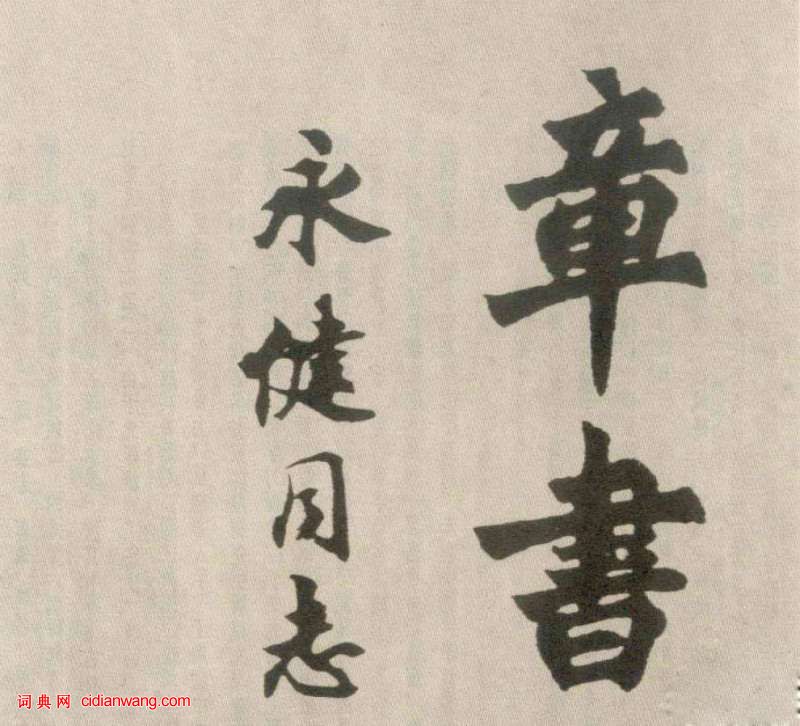 章書
永健同志
词典网 cidianwang.com